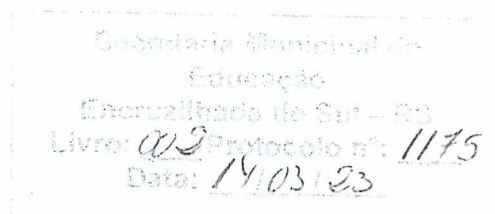 Secretaria Municipal de
Educação
Encruzilhada do Sul – RS
Livro: 002 Protocolo nº: 1175
Data: 14/03/23